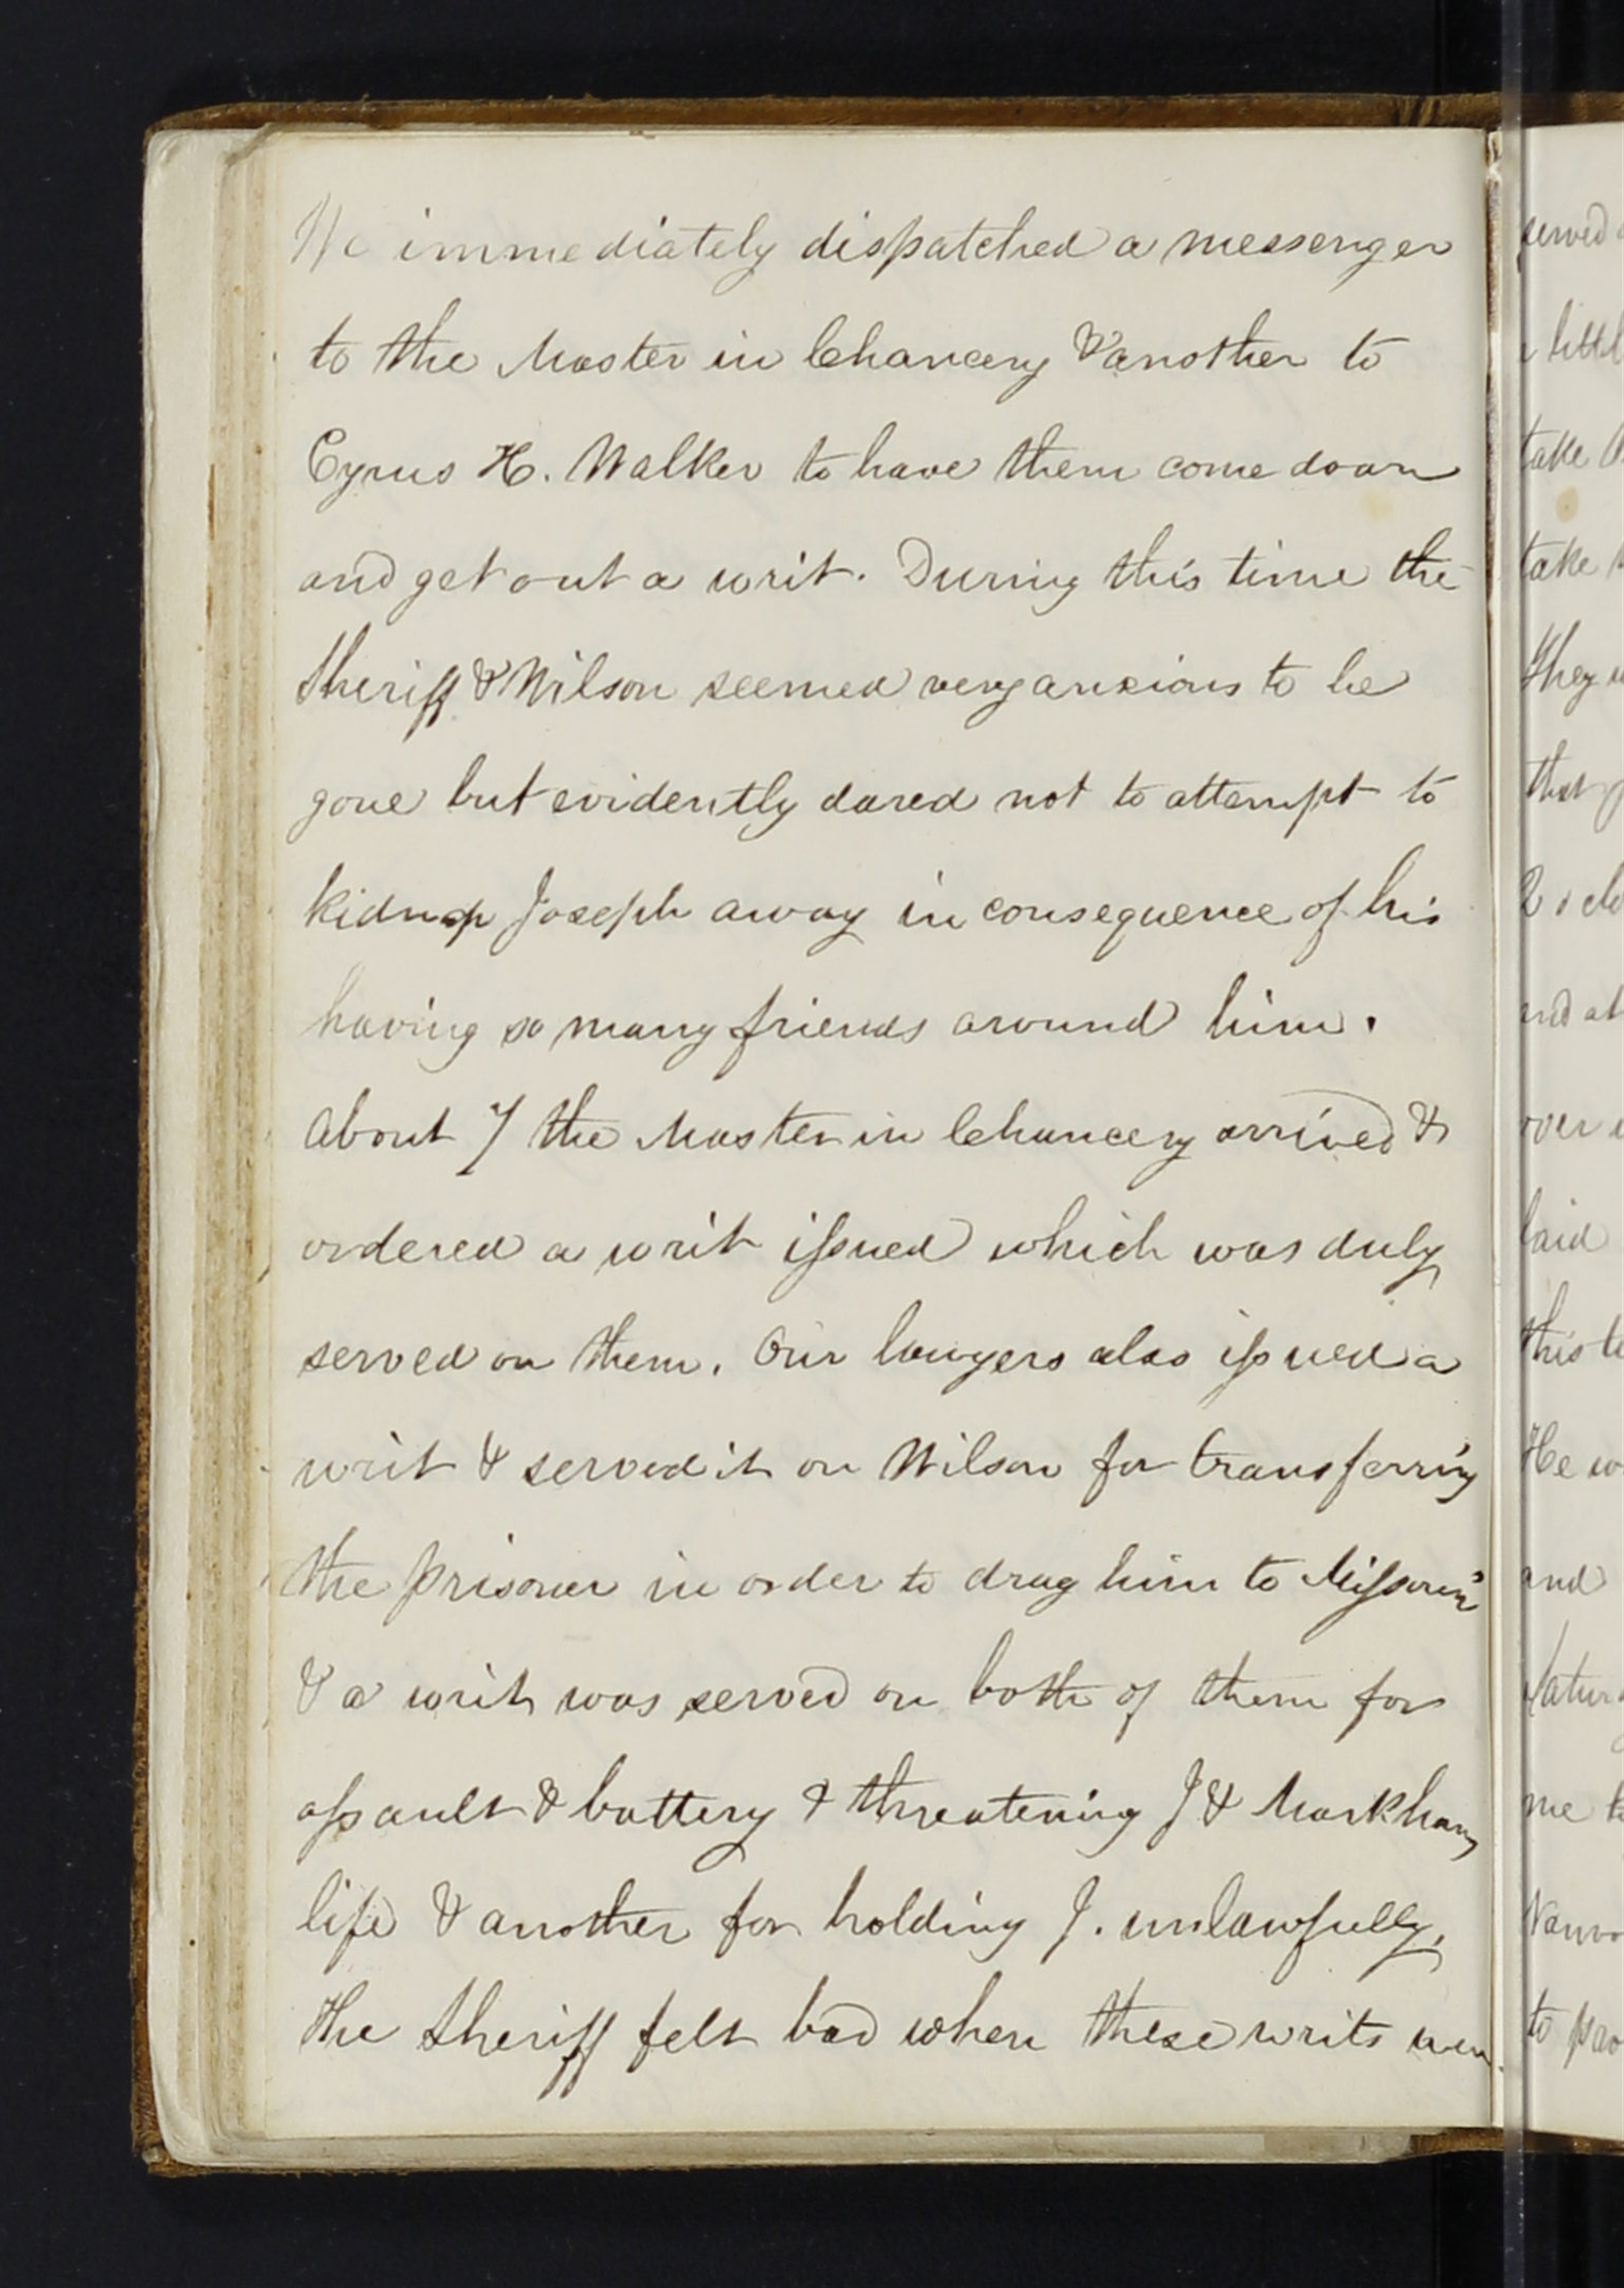 We immediately dispatched a messenger
to the Master in Chancery & another to
Cyrus H. Walker to have them come down
and get out a writ. During this time the
Sheriff & Wilson seemed very anxious to be
gone but evidently dared not to attempt to
kidnap Joseph away in consequence of his
having so many friends around him.
About 7 the Master in Chancery arrived &
ordered a writ issued which was duly
served on them. Our lawyers also issued a
writ & served it on Wilson for transferring
the prisoner in order to drag him to Missouri
& a writ was served on both of them for
assault & battery & threatening J & Markhams
life & another for holding J. unlawfully,
The Sheriff felt bad when these writs were
served
little
take
take
They
that

and at
over
laid
this
He
and

me

to